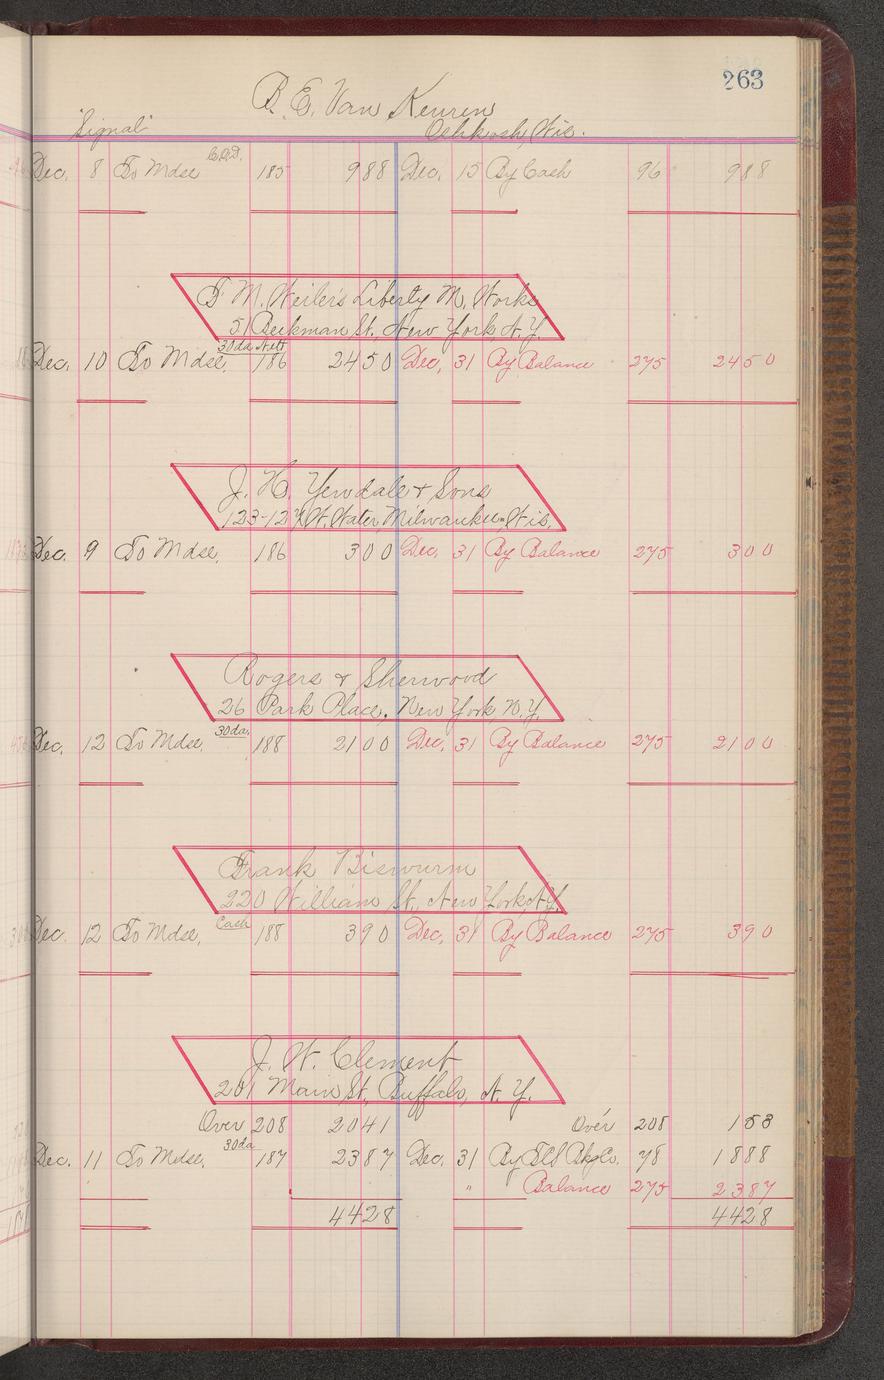 263
B. E. Van Keuren
"Signal" Oshkosh, Wis.
C.O.D.
Dec. 8 To Mdse 185 988 Dec. 15 By Cash 96 988
F. M. Weiler's Liberty M. Works
51 Beekman St., New York N.Y.
30da Nett
Dec. 10 To Mdse, 186 2450 Dec, 31 By Balance 275 2450
J. H. Yewdale & Sons
123-127 W. Water, Milwaukee, Wis.
Dec. 9 To Mdse, 186 300 Dec, 31 By Balance 275 300
Rogers & Sherwood
26 Park Place, New York, N.Y.
30da.
Dec, 12 To Mdse, 188 2100 Dec, 31 By Balance 275 2100
Frank Biswurm
220 William St, New York, N.Y.
Cash
Dec. 12 To Mdse, 188 390 Dec, 31 By Balance 275 390
J. W. Clement
201 Main St, Buffalo, N. Y.
Over 208 2041 Over 208 153
30da
Dec. 11 To Mdse, 187 2387 Dec, 31 By Co. 78 1888
" Balance 275 2387
4428 4428